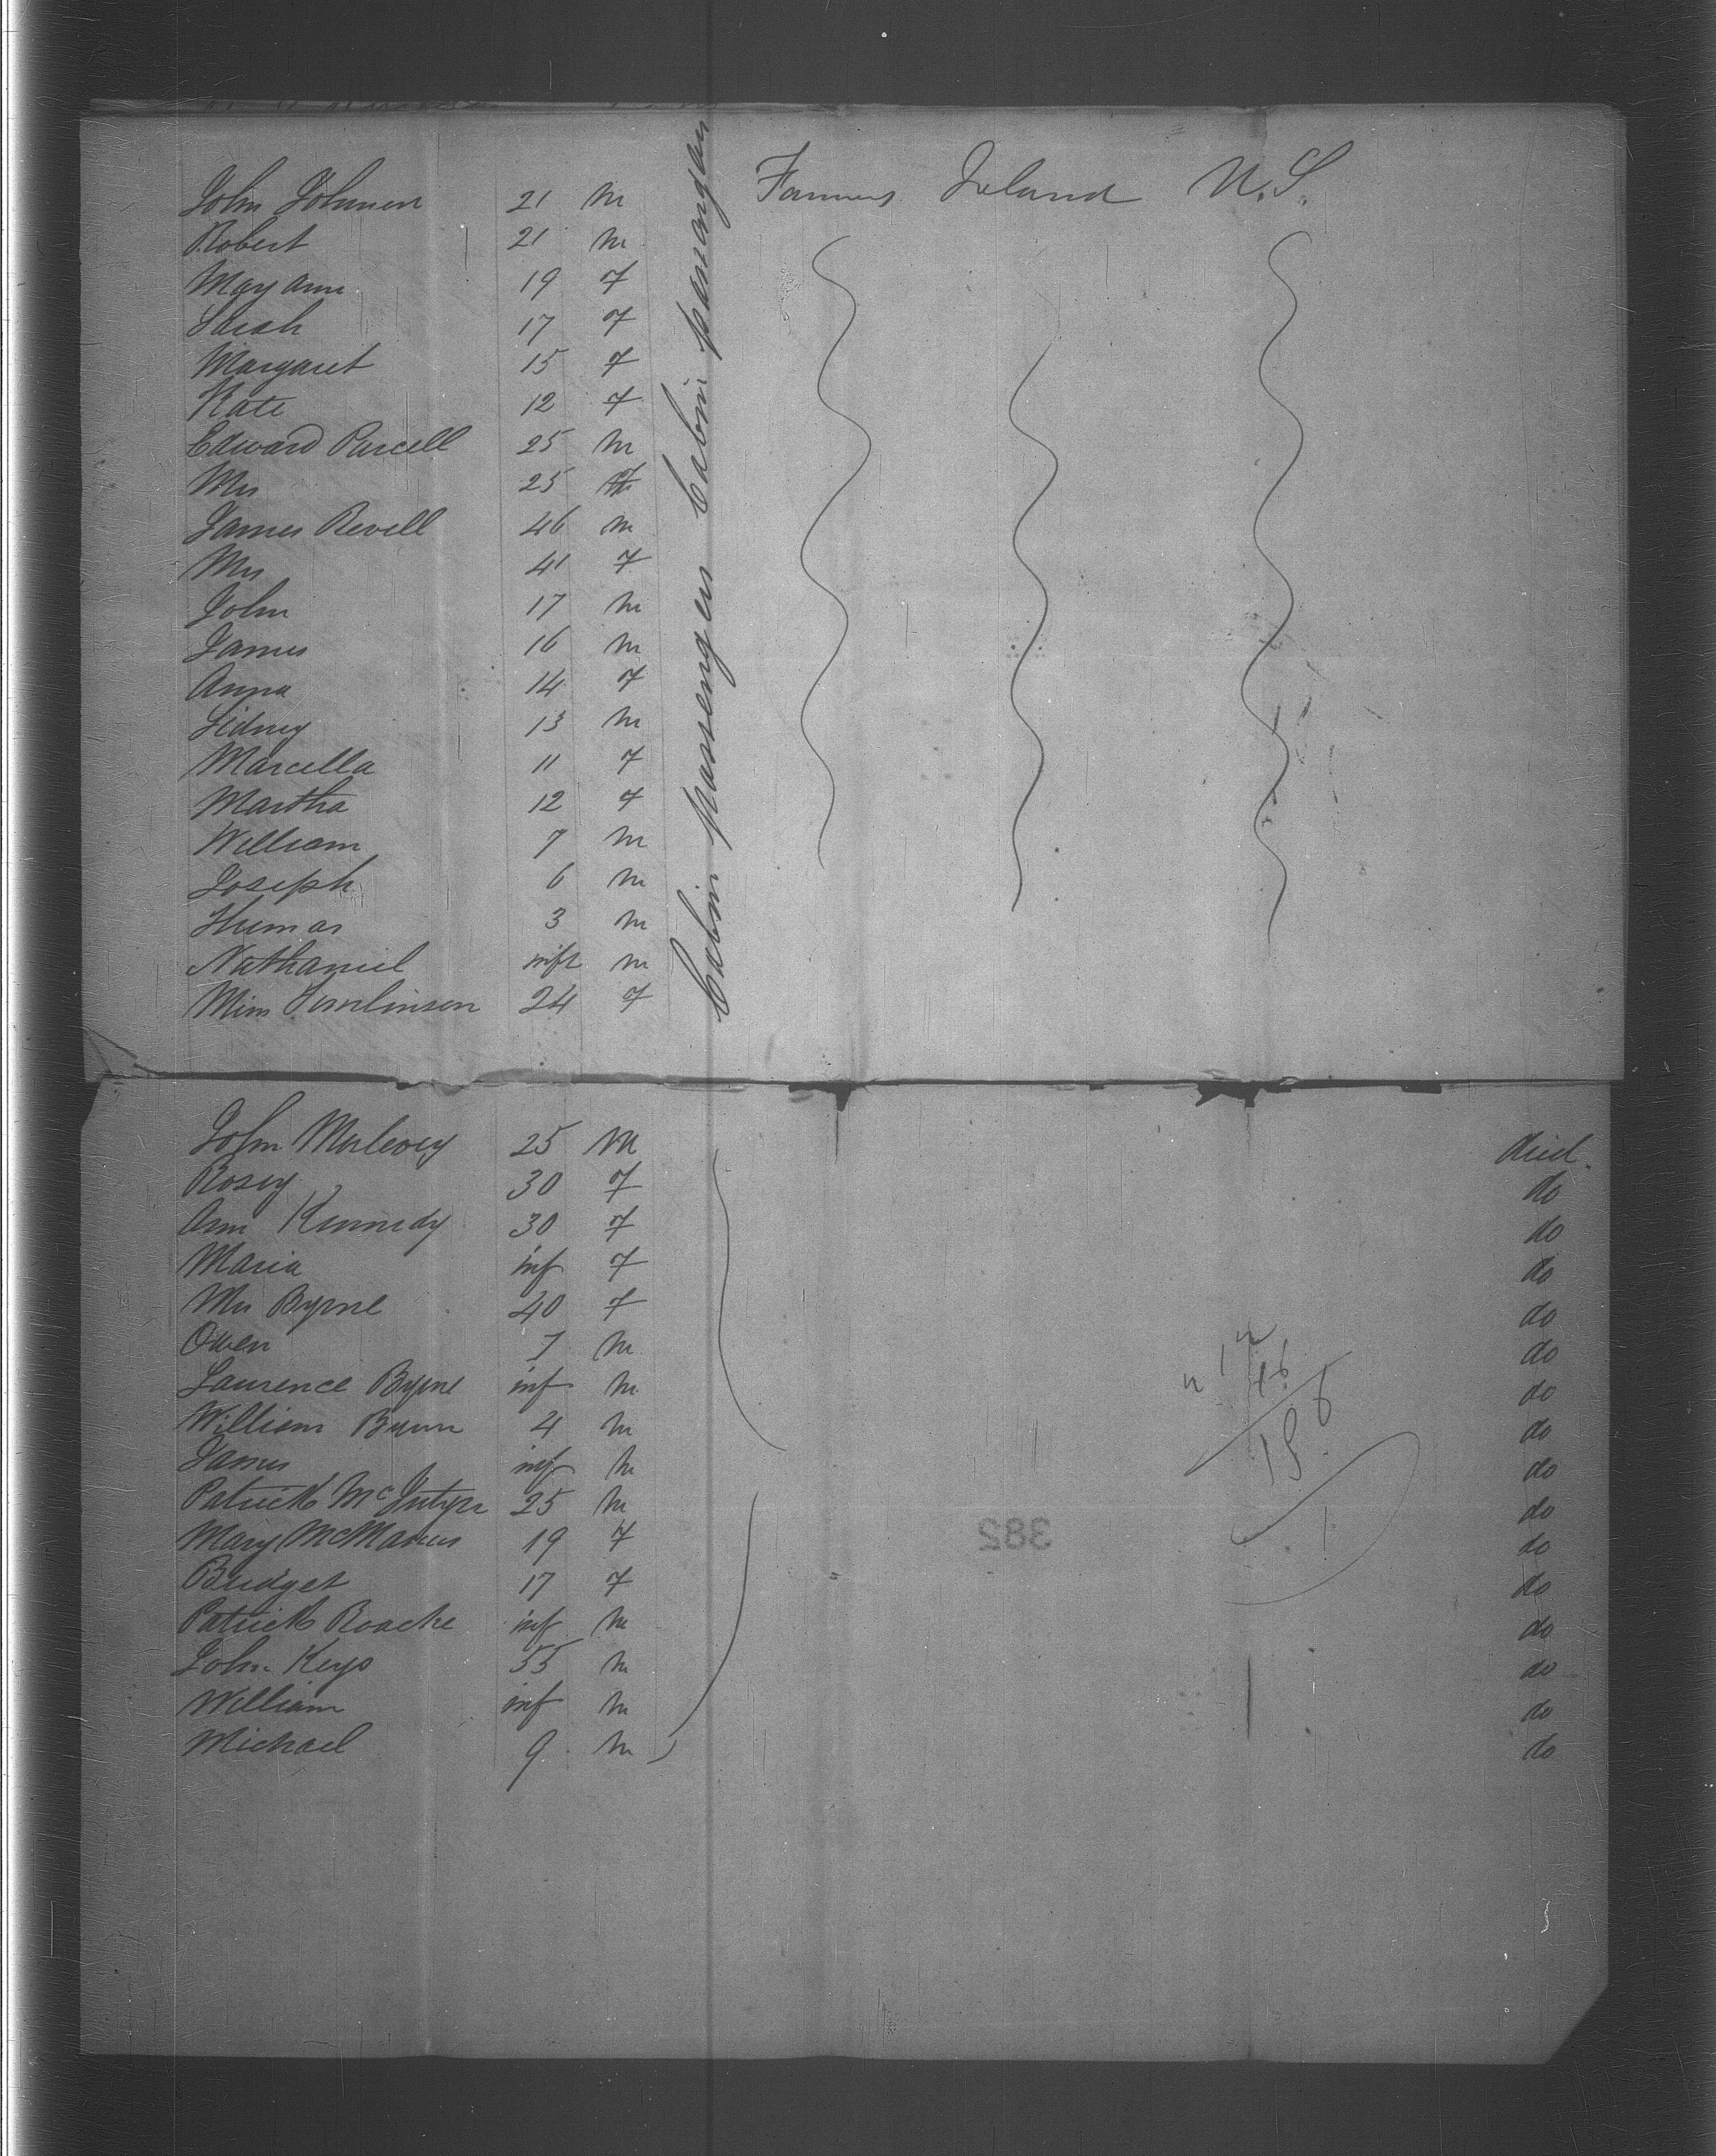 John Johnson 21 m Farmers Ireland U.S.
Robert 21 m
Mary Ann 19 F
Sarah 17 F
Margaret 15 F
Kate 12 F
Edward Purcell 25 m
Mrs 25 F
James Revell 46 m
Mrs 41 F
John 17 m
James 16 m
Anna 14 F
Sidney 13 m
Marcella 11 F
Martha 12 F
William 7 m
Joseph 6 m
Thomas 3 m
Nathaniel inft m
Miss Tomlinson 24 F
Cabin passengers Cabin passengers
John 25 M died.
Rosey 30 F do
Ann Kennedy 30 F do
Maria inf F do
Mrs Byrne 40 F do
Owen 7 m do
Laurence Byrne inf m do
William 4 m do
James inf m do
Patrick McIntyre 25 m do
Mary McManus 19 F do
Bridget 17 F do
Patrick Roache inf m do
John Keys 55 m do
William inf m do
Michael 9 m do
382